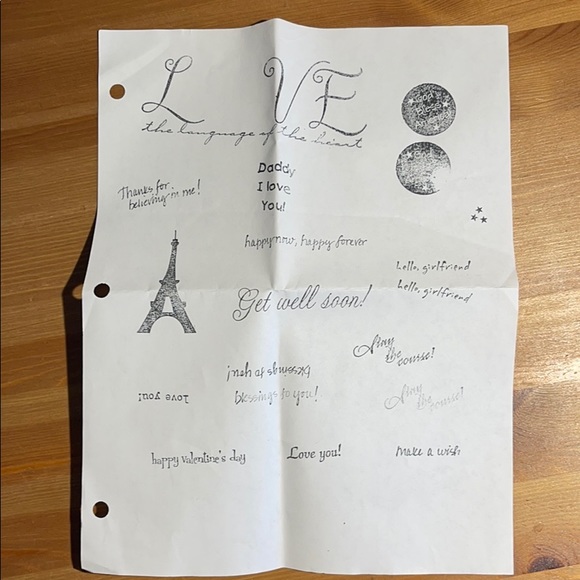 L VE
the language of the heart
Daddy
I love
You!
Thanks for
believing in me!
happy now, happy forever
Hello, girlfriend
Hello, girlfriend
Get well soon!
Stay
the
course!
Blessings to you!
blessings to you!
Love you!
Stay
the
course!
happy valentine's day
Love you!
Make a wish